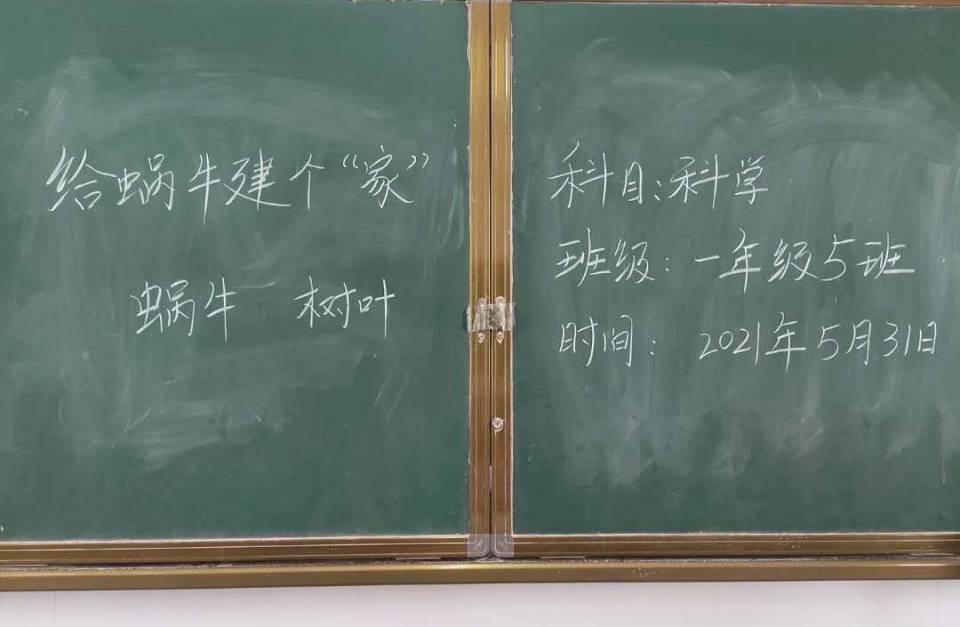 给蜗牛建个“家”
蜗牛 树叶
科目:科学
班级:一年级5班
时间: 2021年5月31日